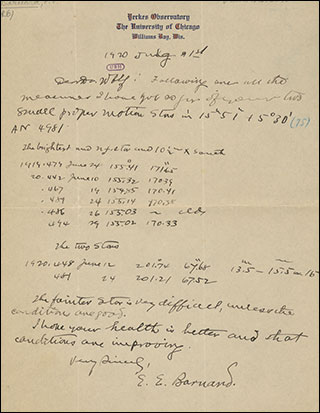 Yerkes Observatory
The University of Chicago
Williams Bay, Wis.
1920 July 1st
Dear Dr Wolf: Following are all the
measures I have got so far of your two
small proper motion stars in 15h 51m + 5° 30' (95)
AN 4981
The brightest and n.f. star and 10½m * south
1919.479 June 24 155.41 171.65
20.442 June 10 155.32 170.39
.467 19 154.75 170.41
.481 24 155.14 170.35
.486 26 155.03 ~ cldy
.494 29 155.02 170.33
The two Stars
1920.448 June 12 201.74 67.68 13.5m – 15.5m – 16
481 24 201.21 67.52
The fainter star is very difficult, unless the
conditions are good.
I hope your health is better and that
conditions are improving.
Very Sincerely,
E. E. Barnard.